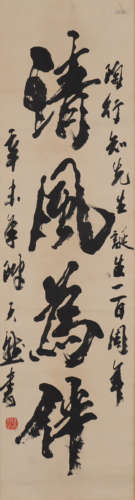 陶行知先生誕生一百周年
清風為伴
辛未年陳天然書